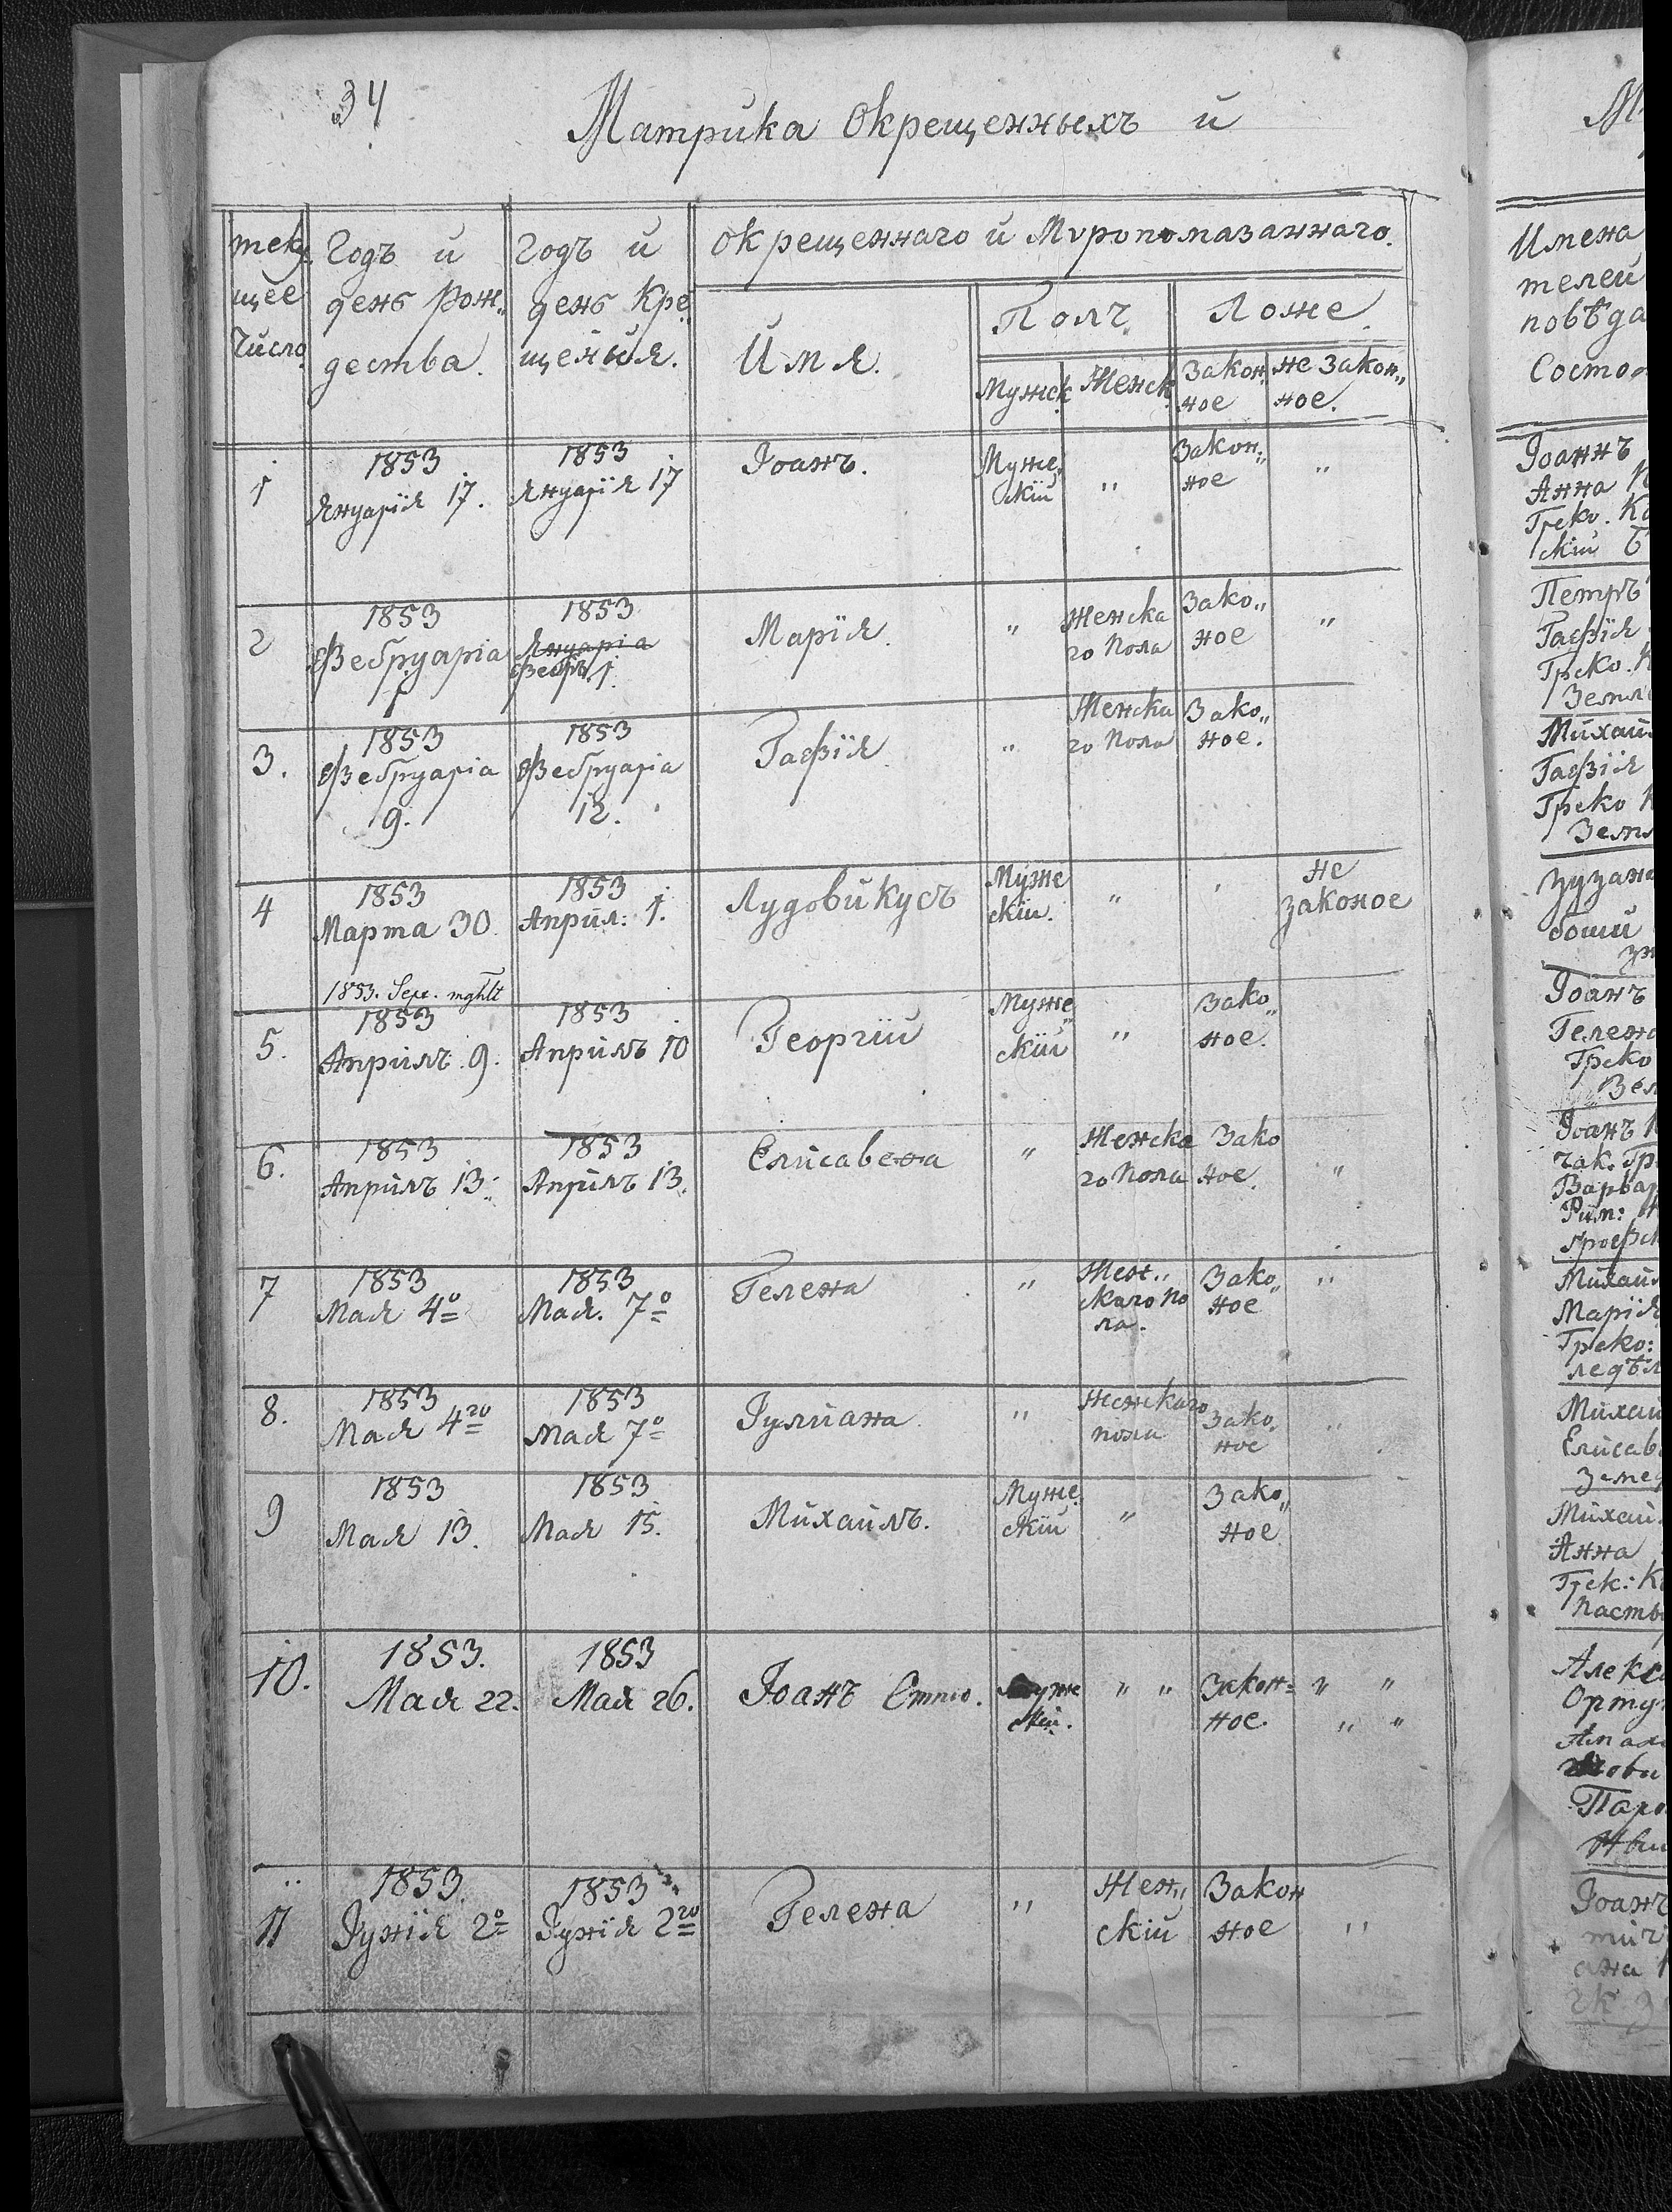 34
Матрика Окрещенныхъ и
теку. щее Число
Годъ и день рож„ дества.
Годъ и день Кре„ щенiия.
окрещеннаго и Мѵропомазаннаго.
Имя.
Полъ.
Ложе.
Мужск. Женск. Закон„ ное не закон„ ное.
1 1853 Януарїя 17. 1853 Януарїя 17 Іоанъ. Муже„ скїй „ Закон„ ное „
2 1853 Фебруаріа 1 1853 Януаріа Фебр. 1. Марїя. „ Женска го пола Зако„ ное „
3. 1853 Фебруаріа 9. 1853 Фебруаріа 12. Гафїя. „ Женска го пола Зако„ ное.
4 1853 Марта 30. 1853 Април: 1. Лудовикусъ Муже скїи. „ не законое
1853. Sept. mghlt
5. 1853 Априлъ 9. 1853 Априлъ 10 Георгїй Муже„ скїй „ Зако„ ное.
6. 1853 Априлъ 13. 1853 Априлъ 13. Елисавета „ Женска го пола Зако ное. „
7 1853 Мая 4º 1853 Мая. 7º Гелена „ Жен„ скаго по ла. Зако„ ное „
8. 1853 Мая 4го 1853 Мая 7º Іулиана „ Женскаго пола Зако„ ное „
9 1853 Мая 13. 1853 Мая 15. Михаилъ. Муже„ скїй „ Зако„ ное
10. 1853. Мая 22. 1853 Мая 26. Іоанъ Муже скїй. „ „ Закон= ное. „ „ „ „
11 1853. Іунїя 2º 1853 Іунїя 2го Гелена „ Жен„ скїй Закон ное „
Имена
телей
повѣда
Состо
Іоаннъ
Анна
Греко. Ка
скїй
Петръ
Гафїя
Греко.
Земл
Михаи
Гафїя
Греко
Земл
Зузана
Іоанъ
Гелена
Греко
Іоанъ
чак. Гр
Варвар
Рим:
Михаил
Марїя
Греко:
ледѣл
Михаи
Елисав
Земед
Михаи
Анна
Грек: К
паст
Алекс
Орту
Паро
Іоанъ